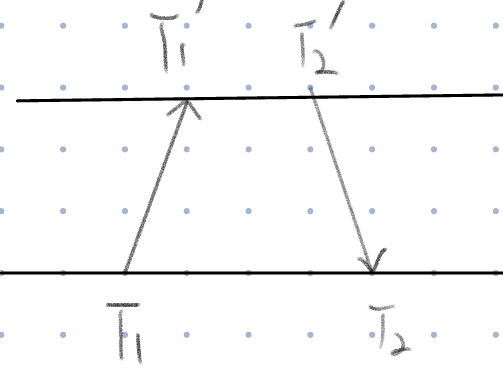 T₁' T₂'
T₁ T₂